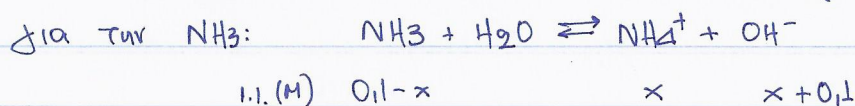 για την NH3: NH3 + H2O ⇌ NH4⁺ + OH⁻
ι.ι. (M) 0,1-x x x+0,1